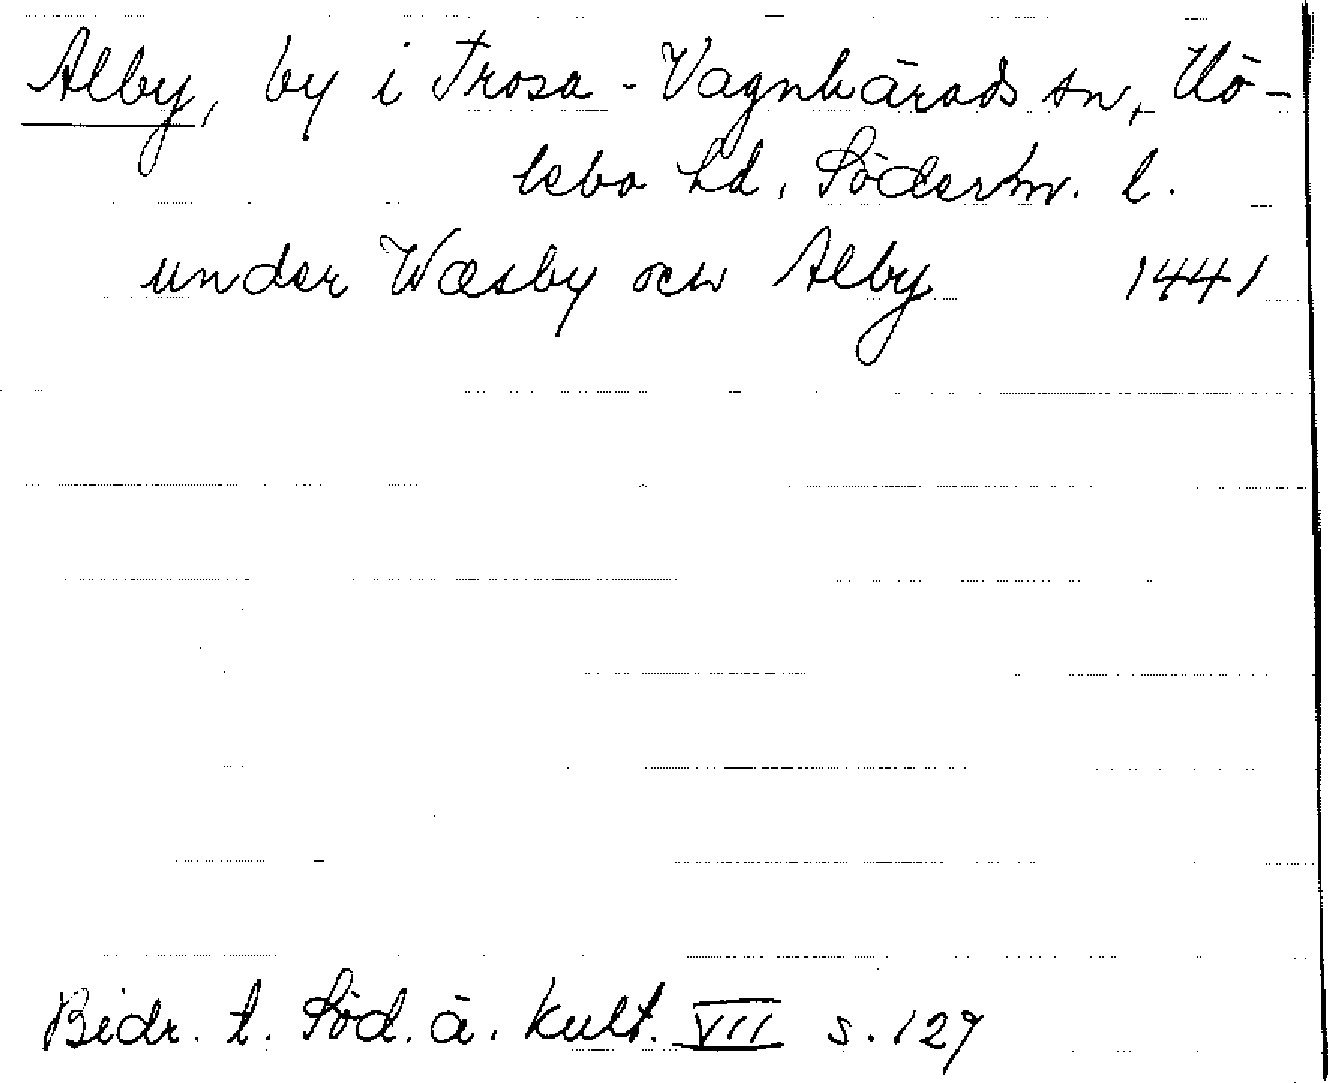 Alby, by i Trosa-Vagnhärads sn, Hö-
lebo hd, Söderm. l.
under Wæsby ocw Alby 1441
Bidr. t. Söd. ä. kult. VII s. 127